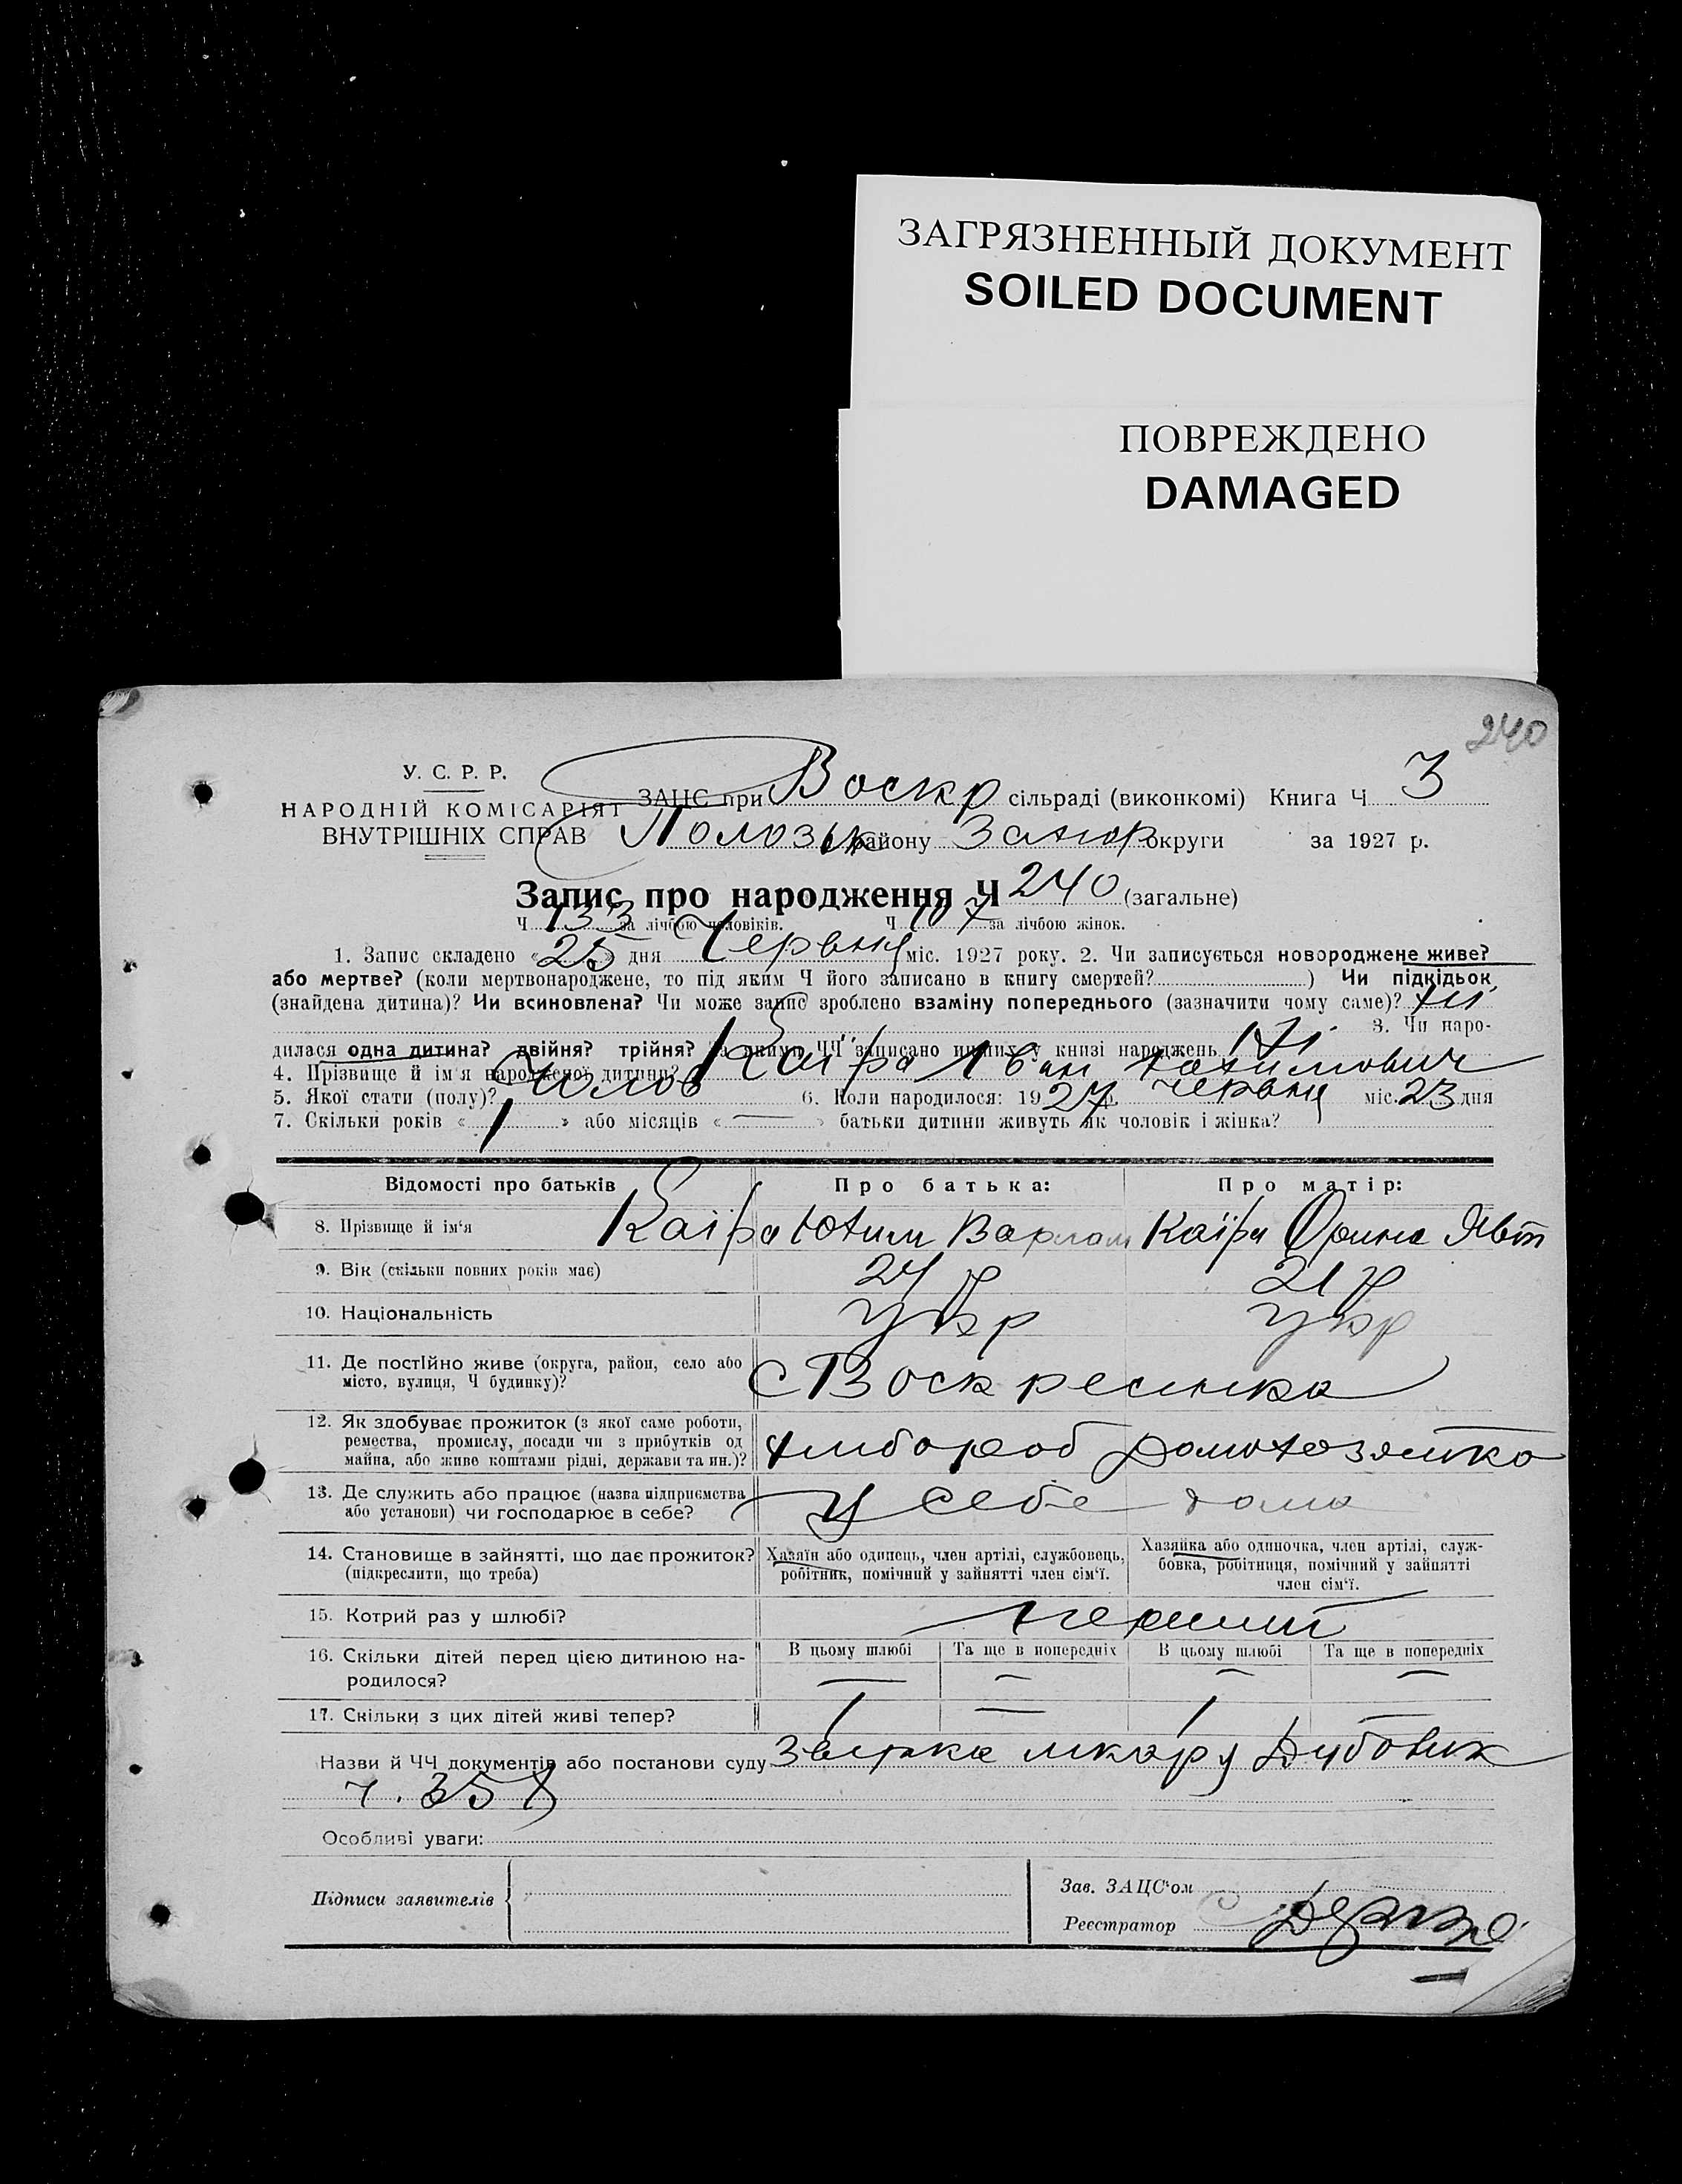 ЗАГРЯЗНЕННЫЙ ДОКУМЕНТ
SOILED DOCUMENT
ПОВРЕЖДЕНО
DAMAGED
240
У. С. Р. Р.
НАРОДНІЙ КОМІСАРІЯТ
ВНУТРІШНІХ СПРАВ
ЗАЦС при Воскр сільраді (виконкомі) Книга Ч 3
Полозьк району Запор округи за 1927 р.
Запис про народження Ч 240 (загальне)
Ч 133 за лічбою чоловіків. Ч 107 за лічбою жінок.
1. Запис складено « 25 » дня Червня міс. 1927 року. 2. Чи записується новороджене живе?
або мертве? (коли мертвонароджене, то під яким Ч його записано в книгу смертей? ) Чи підкідьок
(знайдена дитина)? Чи всиновлена? Чи може запис зроблено взаміну попереднього (зазначити чому саме)? ні
3. Чи наро-
дилася одна дитина? двійня? трійня? За якими ЧЧ записано инших у книзі народжень Ні
4. Прізвище й ім'я народженої дитини? Каіра Іван Юхимович
5. Якої стати (полу)? Чолов 6. Коли народилося: 1927 р. червня міс. 23 дня
7. Скільки років « 1 » або місяців « — » батьки дитини живуть як чоловік і жінка?
Відомості про батьків Про батька: Про матір:
8. Прізвище й ім'я Каїра Юхим Варлам Каїра Орина Явт
9. Вік (скільки повних років має) 24 р 21 р
10. Національність Укр Укр
11. Де постійно живе (округа, район, село або
місто, вулиця, Ч будинку)? с Воскресенка
12. Як здобуває прожиток (з якої саме роботи,
ремества, промислу, посади чи з прибутків од
майна, або живе коштами рідні, держави та ин.)? хлібороб Домохозяйка
13. Де служить або працює (назва підприємства
або установи) чи господарює в себе? У себе дома
14. Становище в зайнятті, що дає прожиток?
(підкреслити, що треба)
Хазяїн або одинець, член артілі, службовець,
робітник, помічний у зайнятті член сім'ї.
Хазяйка або одиночка, член артілі, служ-
бовка, робітниця, помічний у зайнятті
член сім'ї.
15. Котрий раз у шлюбі? перший
16. Скільки дітей перед цією дитиною на-
родилося?
В цьому шлюбі Та ще в попередніх В цьому шлюбі Та ще в попередніх
— — — —
17. Скільки з цих дітей живі тепер? 1 — 1 —
Назви й ЧЧ документів або постанови суду лікарю Дубовик
ч. 358
Особливі уваги:
Підписи заявителів
Зав. ЗАЦС'ом
Реєстратор